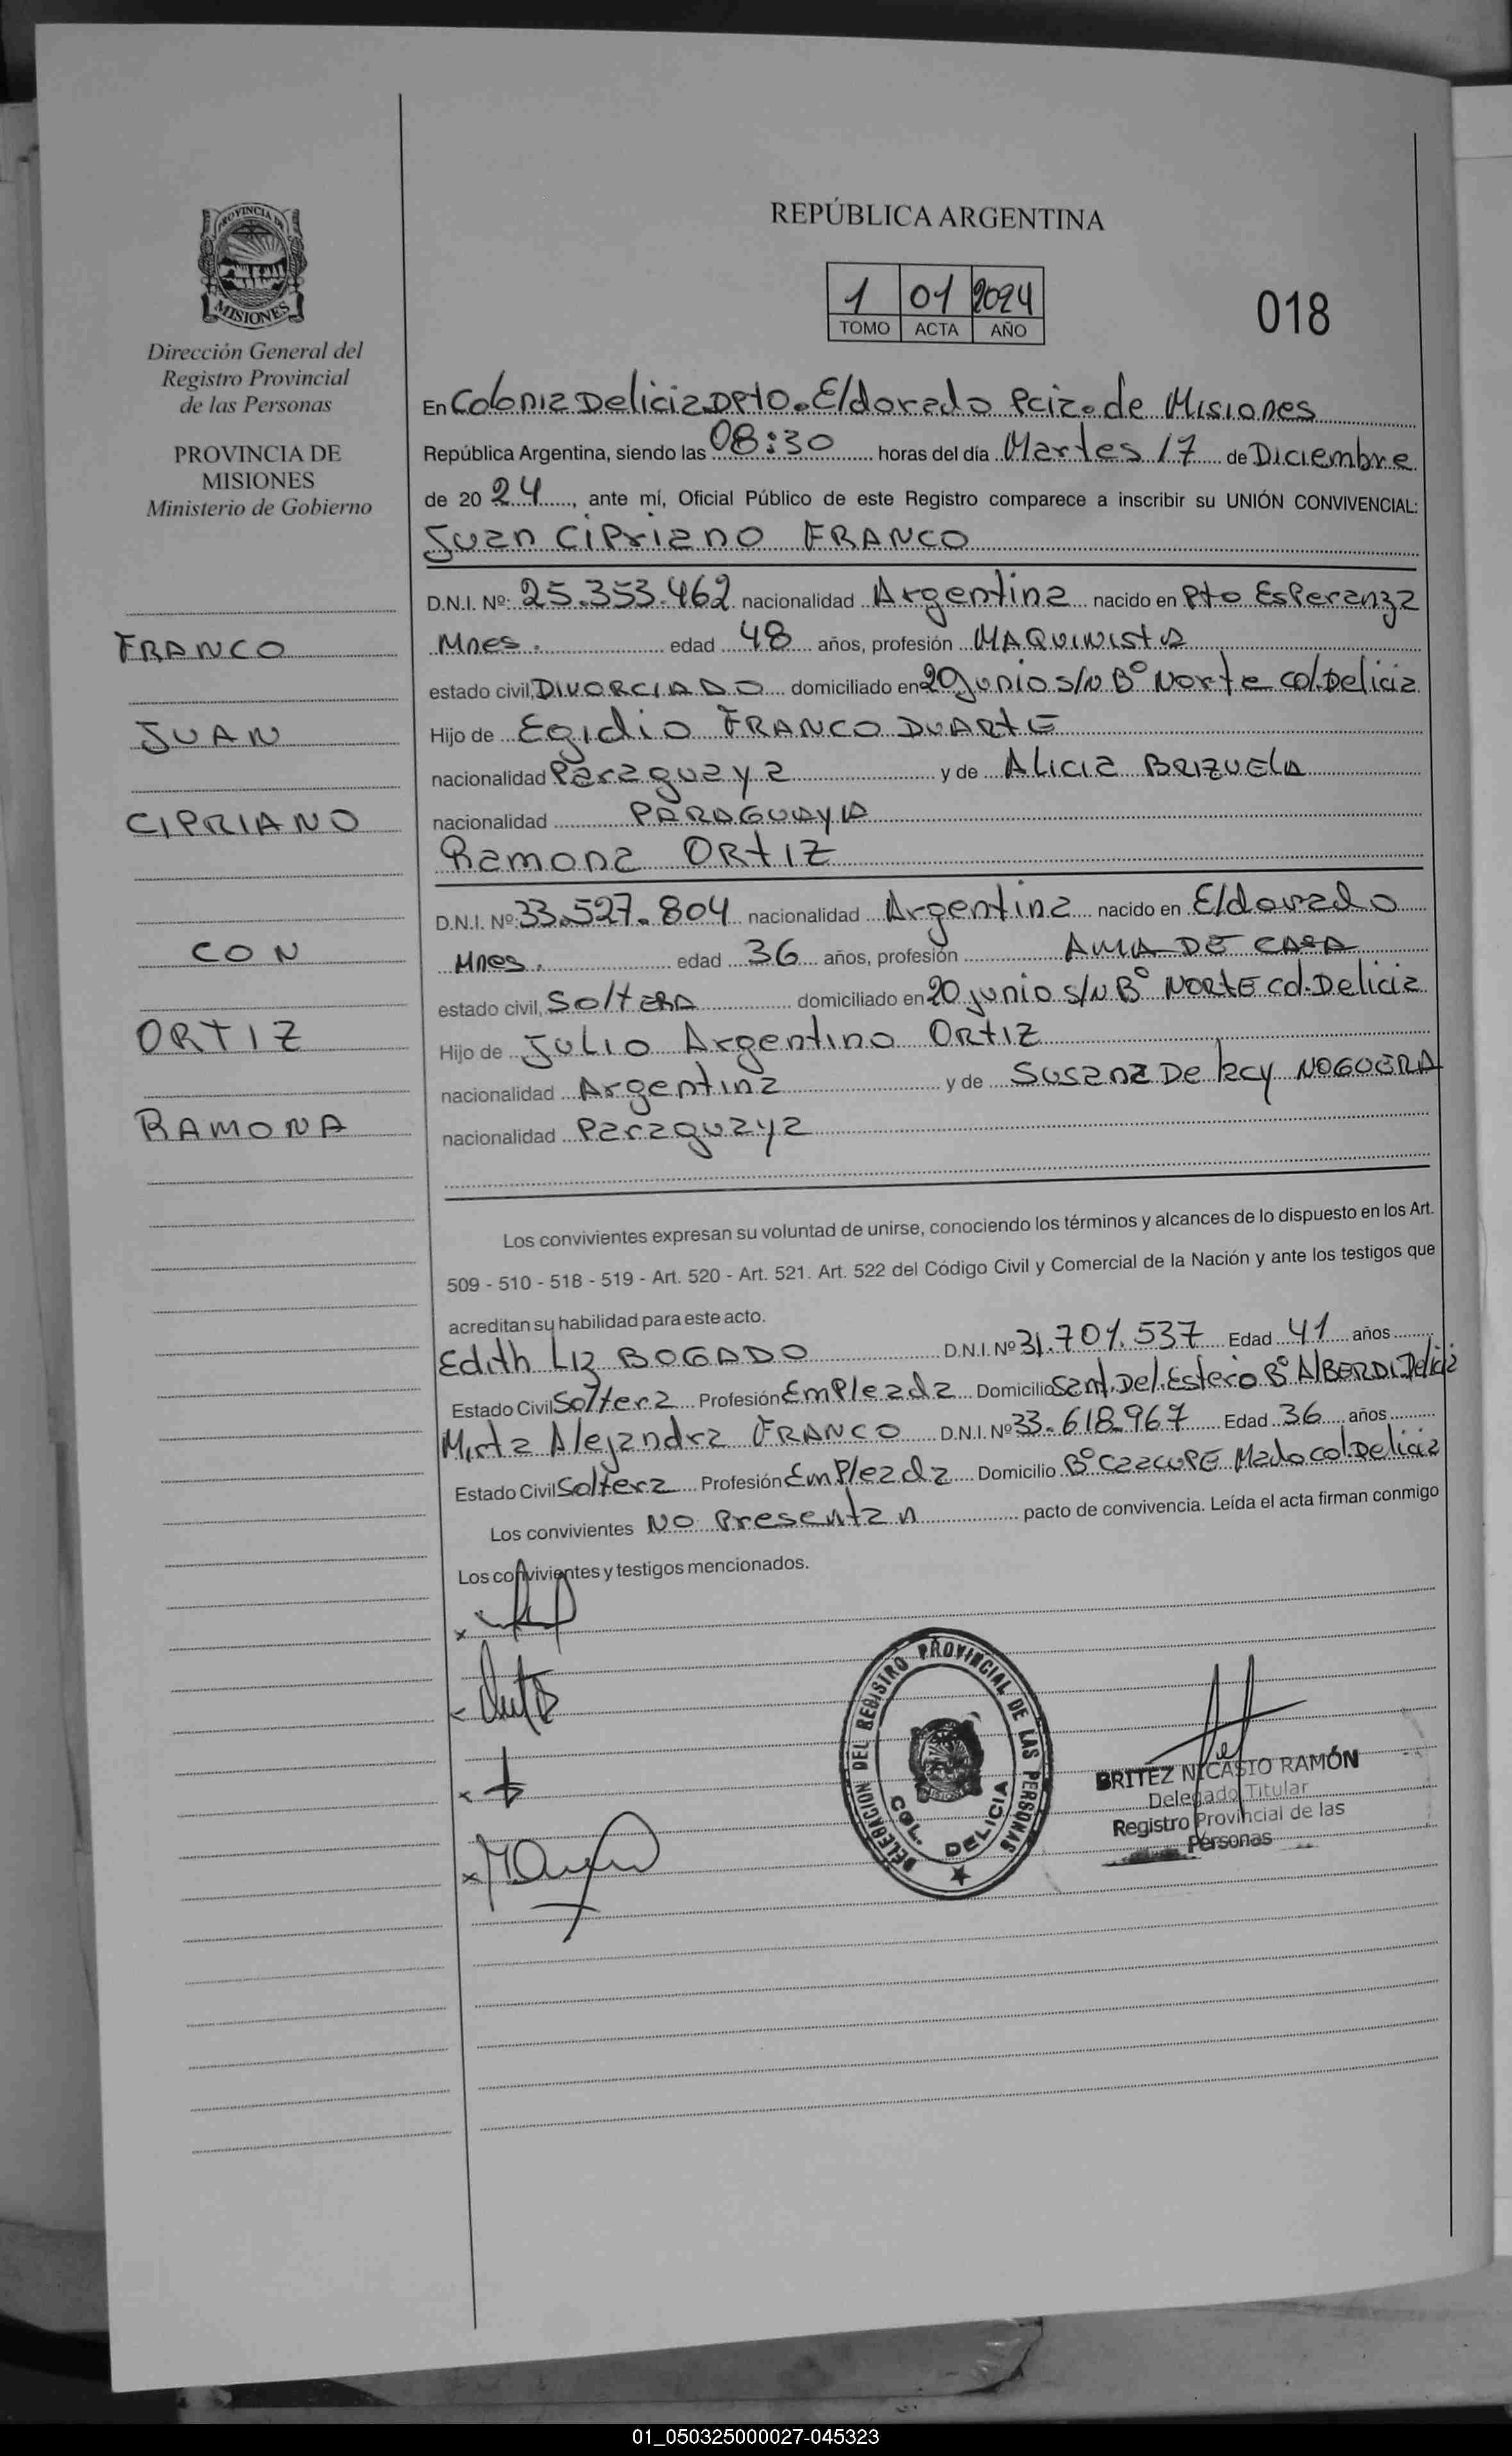 REPÚBLICA ARGENTINA
1 01 2024
TOMO ACTA AÑO
018
PROVINCIA DE
MISIONES
Dirección General del
Registro Provincial
de las Personas
PROVINCIA DE
MISIONES
Ministerio de Gobierno
FRANCO
JUAN
CIPRIANO
CON
ORTIZ
RAMONA
En Colonia Delicia Dpto. Eldorado Pcia. de Misiones
República Argentina, siendo las 08:30 horas del día Martes 17 de Diciembre
de 20 24, ante mí, Oficial Público de este Registro comparece a inscribir su UNIÓN CONVIVENCIAL:
Juan Cipriano FRANCO
D.N.I. Nº: 25.353.462 nacionalidad Argentina nacido en Pto Esperanza
Mnes. edad 48 años, profesión MAQUINIStA
estado civil, DIVORCIADO domiciliado en 20 Junio s/n Bº Norte Col. Delicia
Hijo de Egidio FRANCO DUARtE
nacionalidad Paraguaya y de Alicia BRIZUELA
nacionalidad PARAGUAyA
Ramona ORtIZ
D.N.I. Nº: 33.527.804 nacionalidad Argentina nacido en Eldorado
Mnes. edad 36 años, profesión AMA DE CASA
estado civil, SoltERA domiciliado en 20 junio s/n Bº NORtE Col. Delicia
Hijo de JULIO Argentino ORtIZ
nacionalidad Argentina y de Susana De NOGUERA
nacionalidad Paraguaya
Los convivientes expresan su voluntad de unirse, conociendo los términos y alcances de lo dispuesto en los Art.
509 - 510 - 518 - 519 - Art. 520 - Art. 521. Art. 522 del Código Civil y Comercial de la Nación y ante los testigos que
acreditan su habilidad para este acto.
Edith Liz BOGADO D.N.I. Nº 31.701.537 Edad 41 años
Estado Civil Soltera Profesión Empleada Domicilio Sant. Del. Estero Bº AlBERDI Delicia
Mirta Alejandra FRANCO D.N.I. Nº 33.618.967 Edad 36 años
Estado Civil Soltera Profesión Empleada Domicilio Bº CaacuPE Mado Col. Delicia
Los convivientes NO Presentan pacto de convivencia. Leída el acta firman conmigo
Los convivientes y testigos mencionados.
DELEGACION DEL REGISTRO PROVINCIAL DE LAS PERSONAS
COL. DELICIA
BRITEZ NICASIO RAMÓN
Delegado Titular
Registro Provincial de las
Personas
01_050325000027-045323